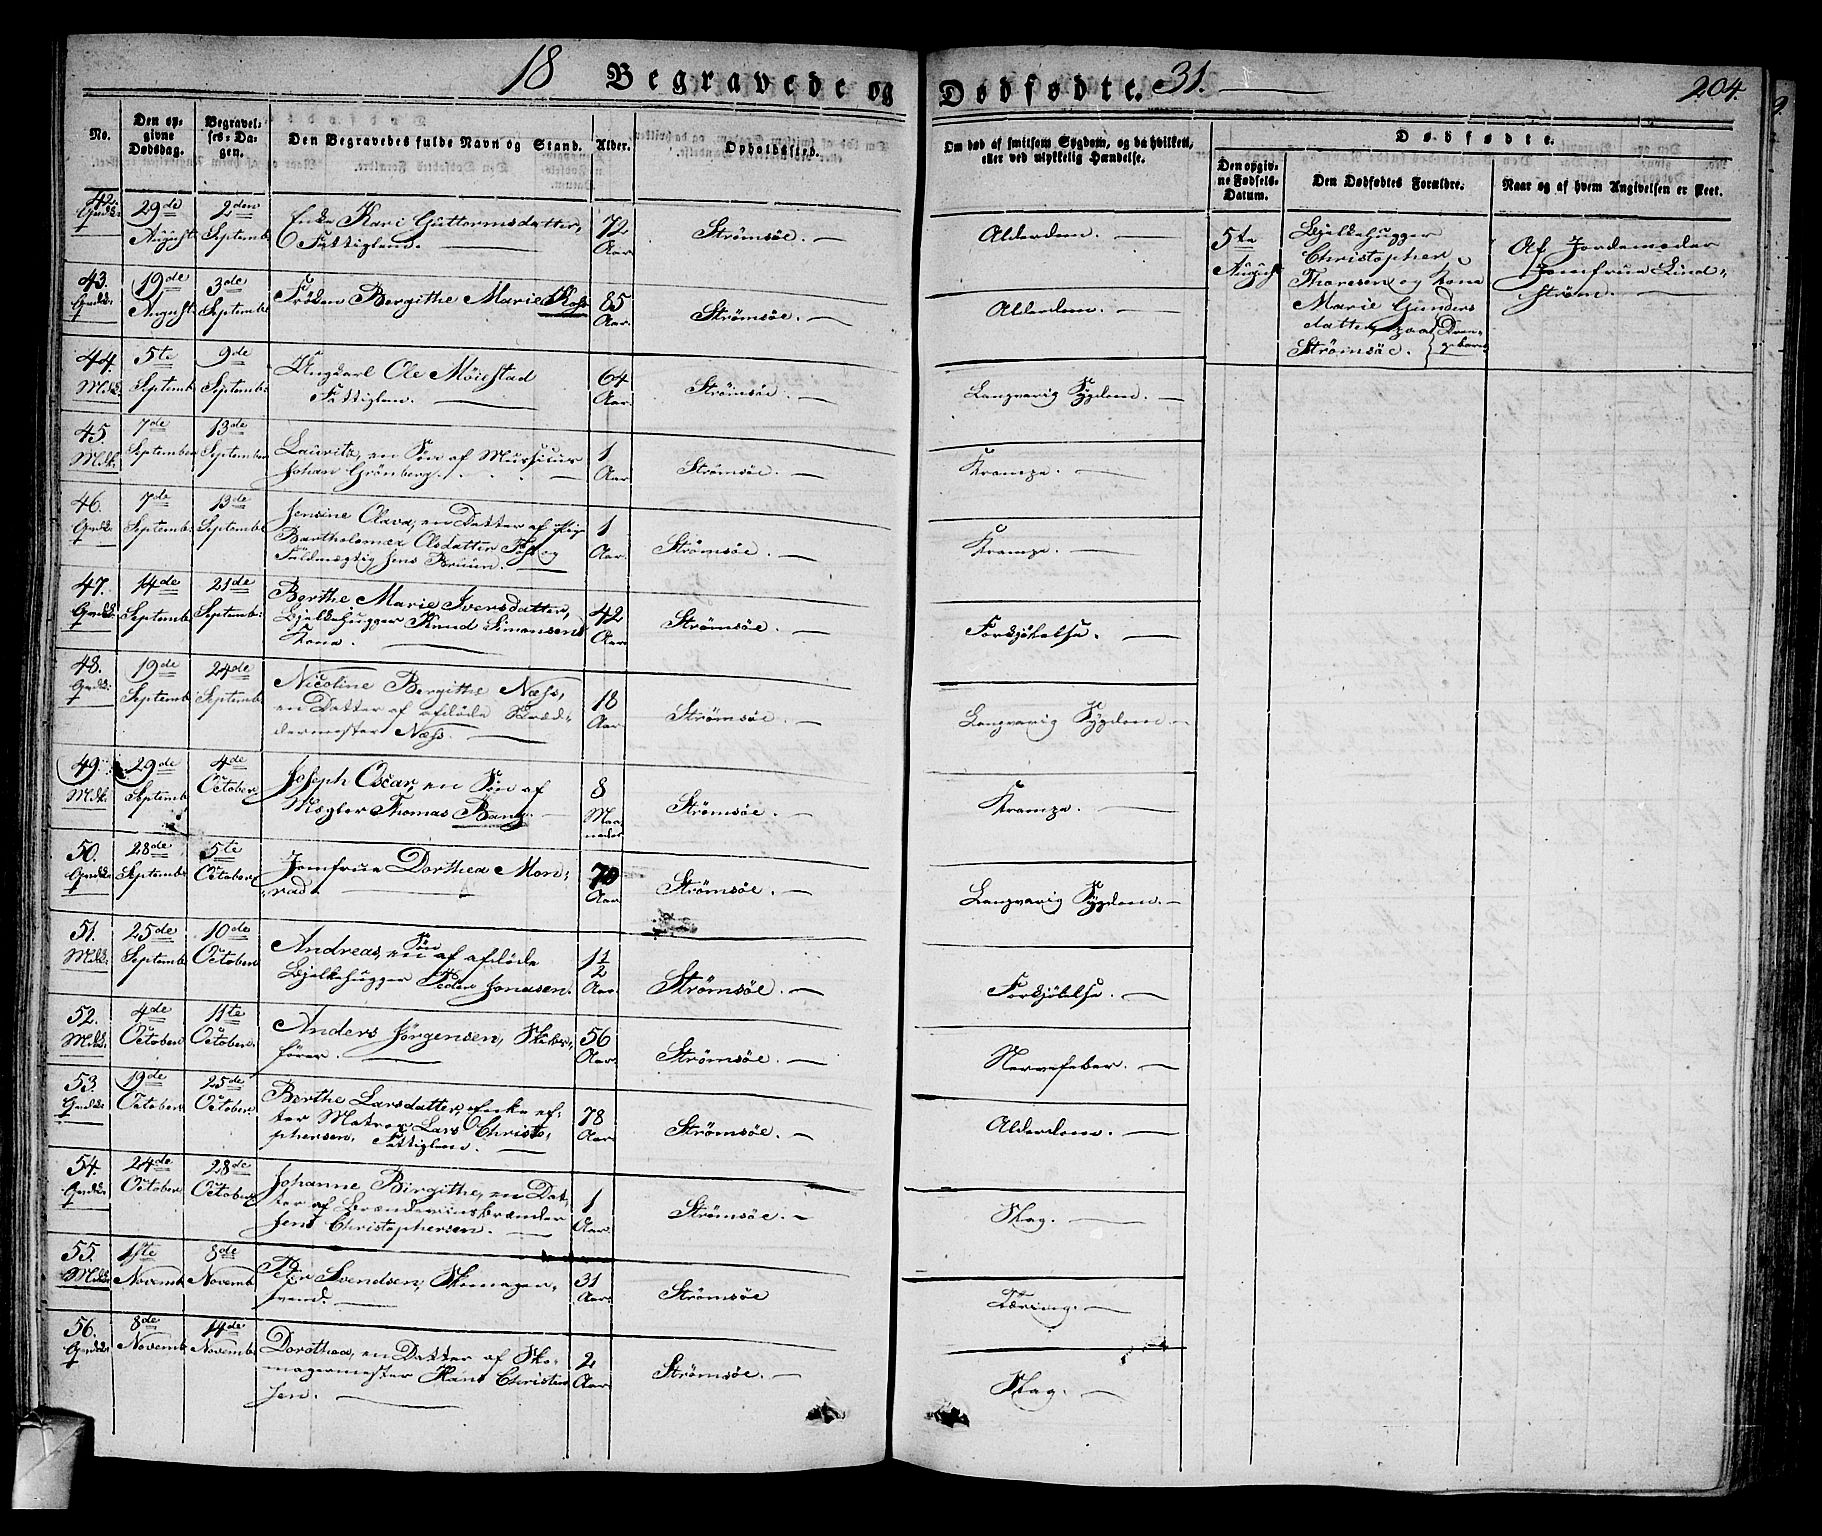 18 Begravede og
Dødfødte. 31.
204.
No.
Den op-
givne
Dødsdag.
Begravel-
ses-Da-
gen.
Den Begravedes fulde Navn og Stand.
Alder.
Opholdssted.
Om død af smitsom Sygdom, og da hvilken,
eller ved ulykkelig Hændelse.
Dødfødte.
Den opgiv-
ne Fødsels-
Datum.
Den Dødfødtes Forældre.
Naar og af hvem Angivelsen er skeet.
42. 29de August 2den September
Enke Kari Guttormsdatter,
Fattiglem.
72 Aar
Strømsøe.
Alderdom.
5te August
Bjelkehugger
Christopher
Thoresen og Kone
Marie Gunders
datter, paa
Strømsøe.
Dren-
gebarn
Af Jordemoder
Jomfrue Lind-
strøm.
43. 19de August 3de September
Frøken Bergithe Marie
85 Aar
Strømsøe.
Alderdom.
44. 5te September 9de September
Ungkarl Ole Möiestad
Fattiglem.
64 Aar
Strømsøe.
Langvarig Sygdom.
45. 7de September 13de September
Lauritz, en Søn af Mussicus
Johan Grönberg.
1 Aar
Strømsøe.
Krampe.
46. 7de September 13de September
Jensine Olava, en Datter af Pige
Bartholomea Olsdatter og
Fuldmægtig Jens Bruun.
1 Aar
Strømsøe.
Krampe.
47. 14de September 21de September
Berthe Marie Iversdatter,
Bjelkehugger Knud Simonsens
Kone.
42 Aar
Strømsøe.
Forkjølelse.
48. 19de September 24de September
Nicoline Bergithe Næss,
en Datter af afdöde Skræd-
dermester Næss.
18 Aar
Strømsøe.
Langvarig Sygdom.
49. 29de September 4de October
Joseph Oscar, en Søn af
Mægler Thomas Bang.
8 Maaneder
Strømsøe.
Krampe.
50. 28de September 5te October
Jomfrue Dorthea Mon-
rad.
70 Aar
Strømsøe.
Langvarig Sygdom.
51. 25de September 10de October
Andreas, en Søn af afdöde
Bjelkehugger Peder Jonasen.
1 1/2 Aar
Strømsøe.
Forkjølelse.
52. 4de October 11te October
Anders Jörgensen, Skibs-
förer.
56 Aar
Strømsøe.
Nervefeber.
53. 19de October 25de October
Berthe Larsdatter, Enke ef-
ter Matros Lars Christo-
phersen, Fattiglem.
78 Aar
Strømsøe.
Alderdom.
54. 24de October 28de October
Johanne Birgithe, en Dat-
ter af Brændeviinsbrænder
Jens Christophersen.
1 Aar
Strømsøe.
Slag.
55. 1ste November 8de November
Peter Svendsen, Skomager-
svend.
31 Aar
Strømsøe
Tæring.
56. 8de November 14de November
Dorothea, en Datter af Sko-
magermester Hans Christen
sen.
2 Aar
Strømsøe.
Slag.